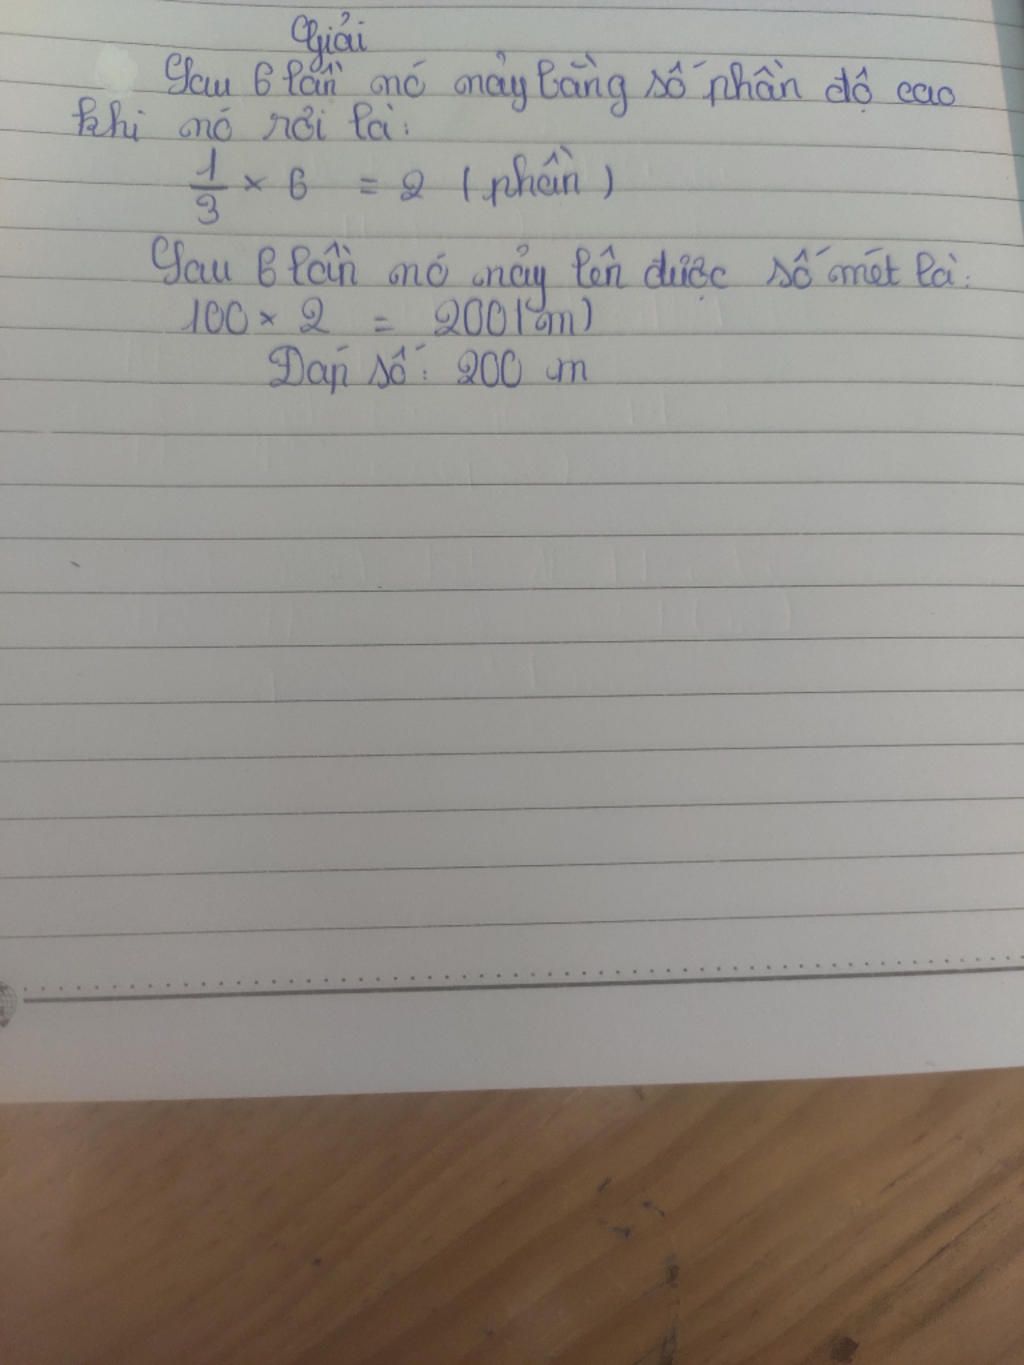 Giải
Sau 6 lần nó nảy bằng số phần độ cao
khi nó rơi là:
1/3 × 6 = 2 (phần)
Sau 6 lần nó nảy lên được số mét là:
100 × 2 = 200 (m)
Đáp số: 200 m